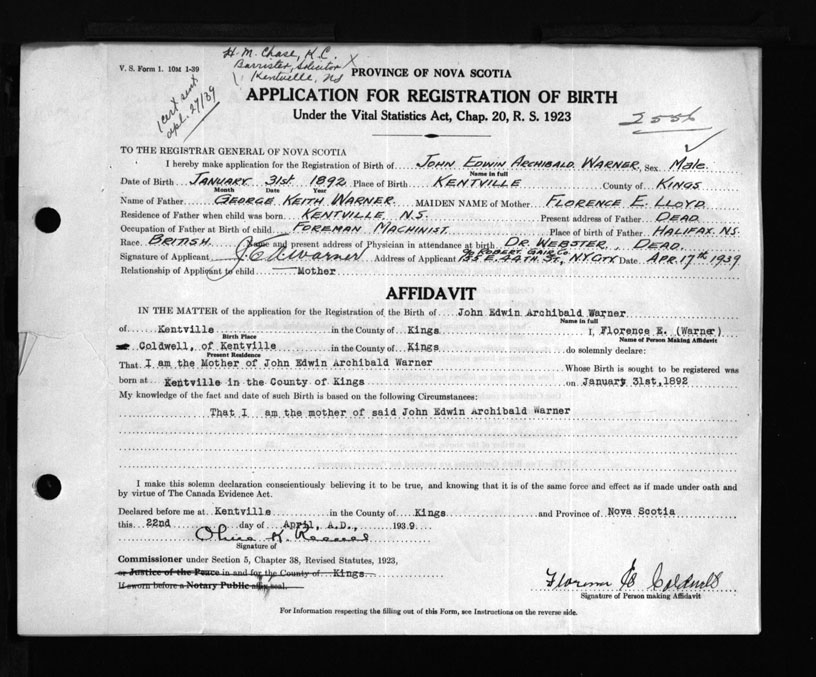 H. M. Chase, K.C.
Barrister, Solicitor X
Kentville, NS
V. S. Form 1. 10M 1-39
1 cert sent
apl. 27/39
PROVINCE OF NOVA SCOTIA
APPLICATION FOR REGISTRATION OF BIRTH
Under the Vital Statistics Act, Chap. 20, R. S. 1923
2556
TO THE REGISTRAR GENERAL OF NOVA SCOTIA
I hereby make application for the Registration of Birth of John Edwin Archibald Warner, Sex Male
Name in full
Date of Birth January 31st 1892 Place of Birth Kentville County of Kings
Month Date Year
Name of Father George Keith Warner MAIDEN NAME of Mother Florence E. Lloyd
Residence of Father when child was born Kentville N.S. Present address of Father Dead
Occupation of Father at Birth of child Foreman Machinist. Place of birth of Father Halifax. NS.
Race British (Name and present address of Physician in attendance at birth Dr. Webster, Dead.
℅ Robert Gair Co.
Signature of Applicant J.E.A. Warner Address of Applicant 155 E. 44th St., N.Y. Cty Date Apr. 17th 1939
Relationship of Applicant to child Mother
AFFIDAVIT
IN THE MATTER of the application for the Registration of the Birth of John Edwin Archibald Warner
Name in full
of Kentville in the County of Kings I, Florence E. (Warner)
Birth Place Name of Person Making Affidavit
Coldwell, of Kentville in the County of Kings do solemnly declare:
Present Residence
That I am the Mother of John Edwin Archibald Warner Whose Birth is sought to be registered was
born at Kentville in the County of Kings on January 31st,1892
My knowledge of the fact and date of such Birth is based on the following Circumstances:
That I am the mother of said John Edwin Archibald Warner
I make this solemn declaration conscientiously believing it to be true, and knowing that it is of the same force and effect as if made under oath and
by virtue of The Canada Evidence Act.
Declared before me at Kentville in the County of Kings and Province of Nova Scotia
this 22nd day of April, A.D., 1939
Signature of
Commissioner under Section 5, Chapter 38, Revised Statutes, 1923,
or Justice of the Peace in and for the County of Kings
If sworn before a Notary Public affix seal.
Florence E Coldwell
Signature of Person making Affidavit
For Information respecting the filling out of this Form, see Instructions on the reverse side.